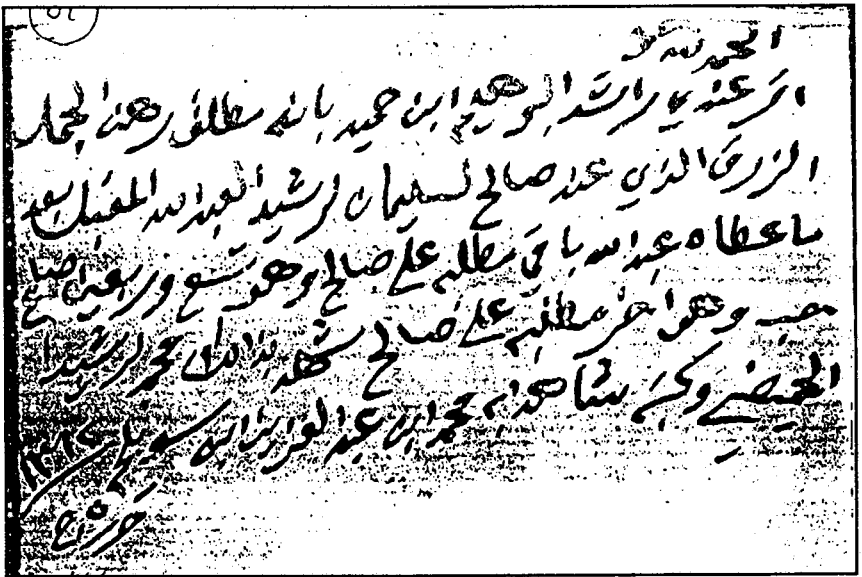 الحمد لله
اقر عندي راشد البوهيم ابن حميد بانه مطلق رهن الجمل
الزرق الذي عند صالح لسليمان لرشيد العبدالله المقبل بعد
ما عطاه عبدالله باقي مطلبه على صالح وهو تسع وربعين صاع
حب وهو اخر مطلبه على صالح شهد بذالك محمد الرشيد
الحميضي وكتبه شاهد به محمد ابن عبدالعزيز ابن سويلم
حرر